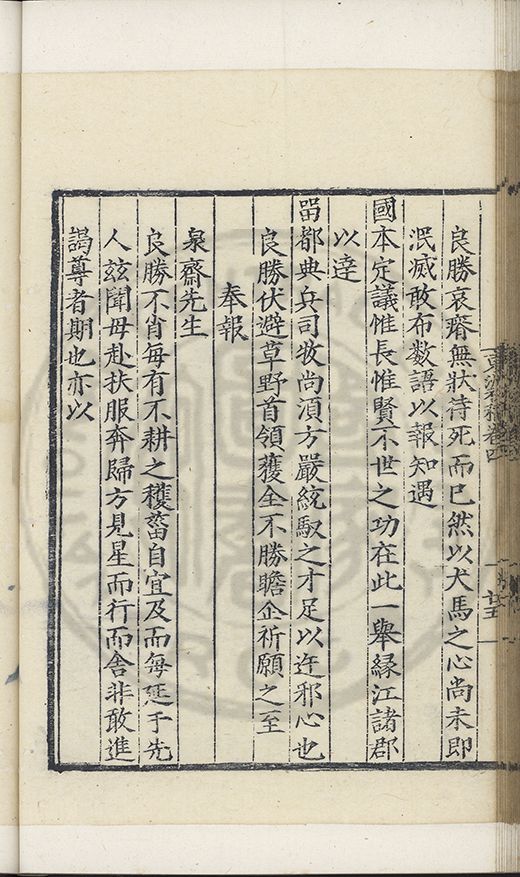 良勝哀瘠無狀待死而已然以犬馬之心尚未即
泯滅敢布数語以報知遇
國本定議惟長惟賢不世之功在此一舉縁江諸郡
以逹
畱都典兵司牧尚湏方嚴統馭之才足以迕邪心也
良勝伏避草野首領獲全不勝瞻企祈願之至
奉報
泉齋先生
良勝不肖每有不耕之穫菑自宜及而每延于先
人兹聞母赴扶服奔歸方見星而行而舍非敢進
謁尊者期也亦以